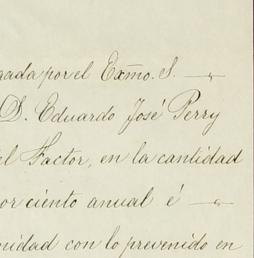 gada por el Exmo. S.
D. Eduardo José Perry
el Factor, en la cantidad
por ciento anual é
midad con lo prevenido en